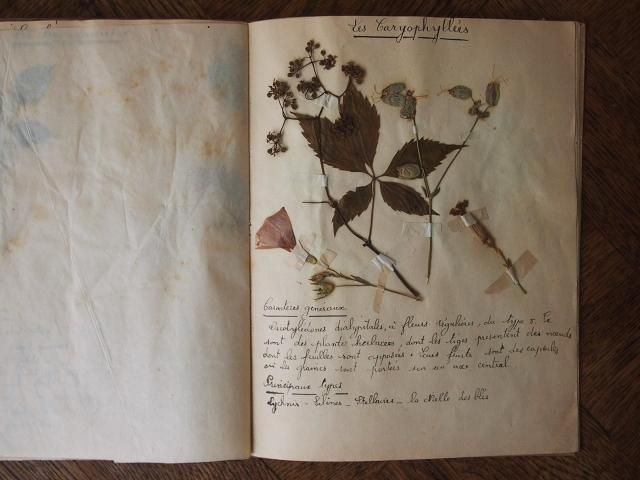 Les Caryophyllées
Caractères généraux
Dicotylédones dialypétales, à fleurs régulières, du type 5. Ce
sont des plantes herbacées, dont les tiges présentent des nœuds
dont les feuilles sont opposées. Leurs fruits sont des capsules
où les graines sont portées sur un axe central.
Principaux types
Lychnis - Silènes - Stellaires - la Nielle des blés